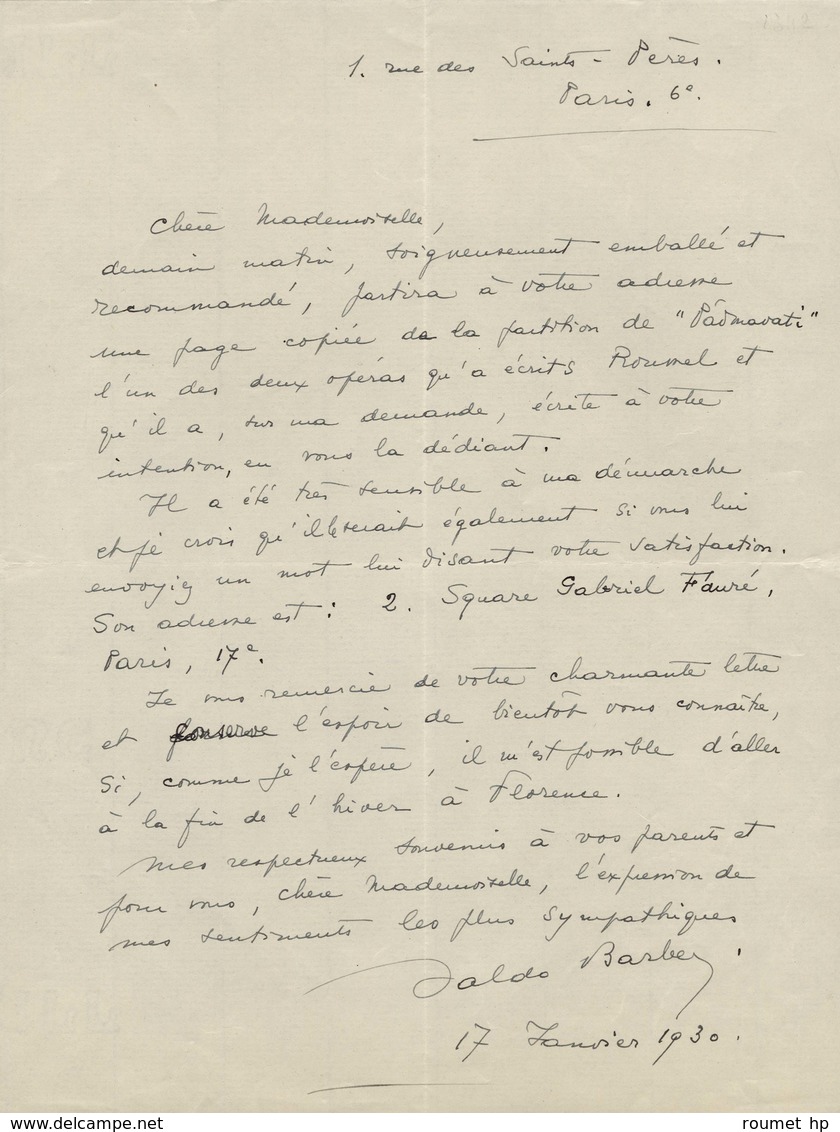 1. rue des Saints-Pères.
Paris. 6e.
Chère Mademoiselle,
demain matin, soigneusement emballé et
recommandé, partira à votre adresse
une page copiée de la partition de "Pâdmavati"
l'un des deux opéras qu'a écrits Roussel et
qu'il a, sur ma demande, écrite à votre
intention, en vous la dédiant.
Il a été très sensible à ma démarche
et je crois qu'il le serait également si vous lui
envoyiez un mot lui disant votre satisfaction.
Son adresse est : 2. Square Gabriel Fauré,
Paris, 17e.
Je vous remercie de votre charmante lettre
et conserve l'espoir de bientôt vous connaître,
si, comme je l'espère, il m'est possible d'aller
à la fin de l'hiver à Florence.
Mes respectueux souvenirs à vos parents et
pour vous, chère Mademoiselle, l'expression de
mes sentiments les plus sympathiques
Valdo Barbey.
17 Janvier 1930.
www.delcampe.net
roumet hp